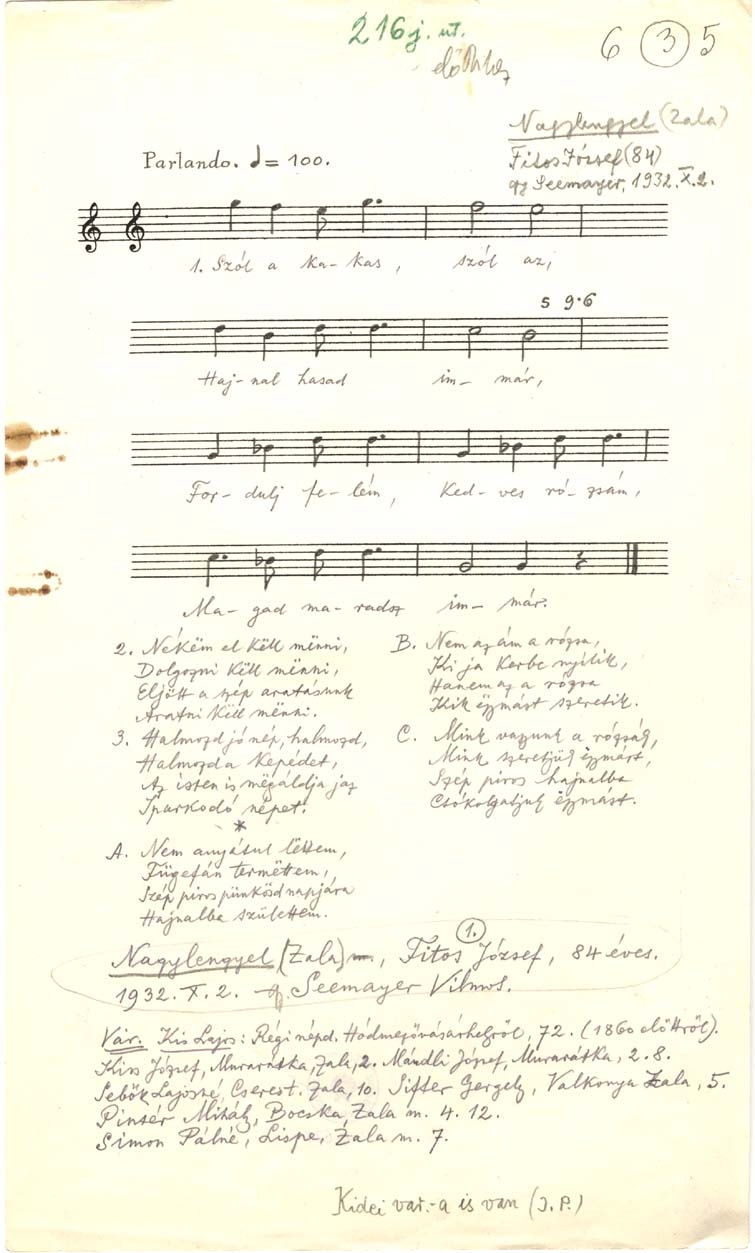 216 j. ut.
6 3 5
Nagylengyel (Zala)
Parlando. ♩= 100.
Fitos József (84)
gy Seemayer, 1932. X. 2.
1. Szól a ka- kas, szól az,
5 9·6
Haj- nal hasad im- már,
For- dulj fe- lém, Ked- ves ró- zsám,
Ma- gad ma- radsz im- már.
2. Nékëm el këll mënni,
Dolgozni këll mënni,
Eljött a szép aratásunk
Aratni këll mënni.
3. Halmozd jó nép, halmozd,
Halmozd a képédet,
Az isten is mëgáldja jaz
Iparkodó népet.
*
A. Nem anyátul lëttem,
Fügefán termëttem,
Szép piros pünkösd napjára
Hajnalba születtem.
B. Nem az ám a rózsa,
Ki ja kerbe nyílik,
Hanem az a rózsa
Kik ëgymást szeretik.
C. Mink vagyunk a rózsák,
Mink szeretjük ëgymást,
Szép piros hajnalba
Csókolgatjuk ëgymást.
1.
Nagylengyel (Zala), Fitos József, 84 éves.
1932. X. 2. gy. Seemayer Vilmos.
Vár. Kis Lajos: Régi népd. Hódmezővásárhelyről, 72. (1860 előttről).
Kiss József, Murarátka, Zala, 2. Mándli József, Murarátka, 2. 8.
Sebők Lajosné, Cserest. Zala, 10. Sifter Gergely, Valkonya Zala, 5.
Pintér Mihály, Bocska, Zala m. 4. 12.
Simon Pálné, Lispe, Zala m. 7.
Kidei var.-a is van (J. P.)